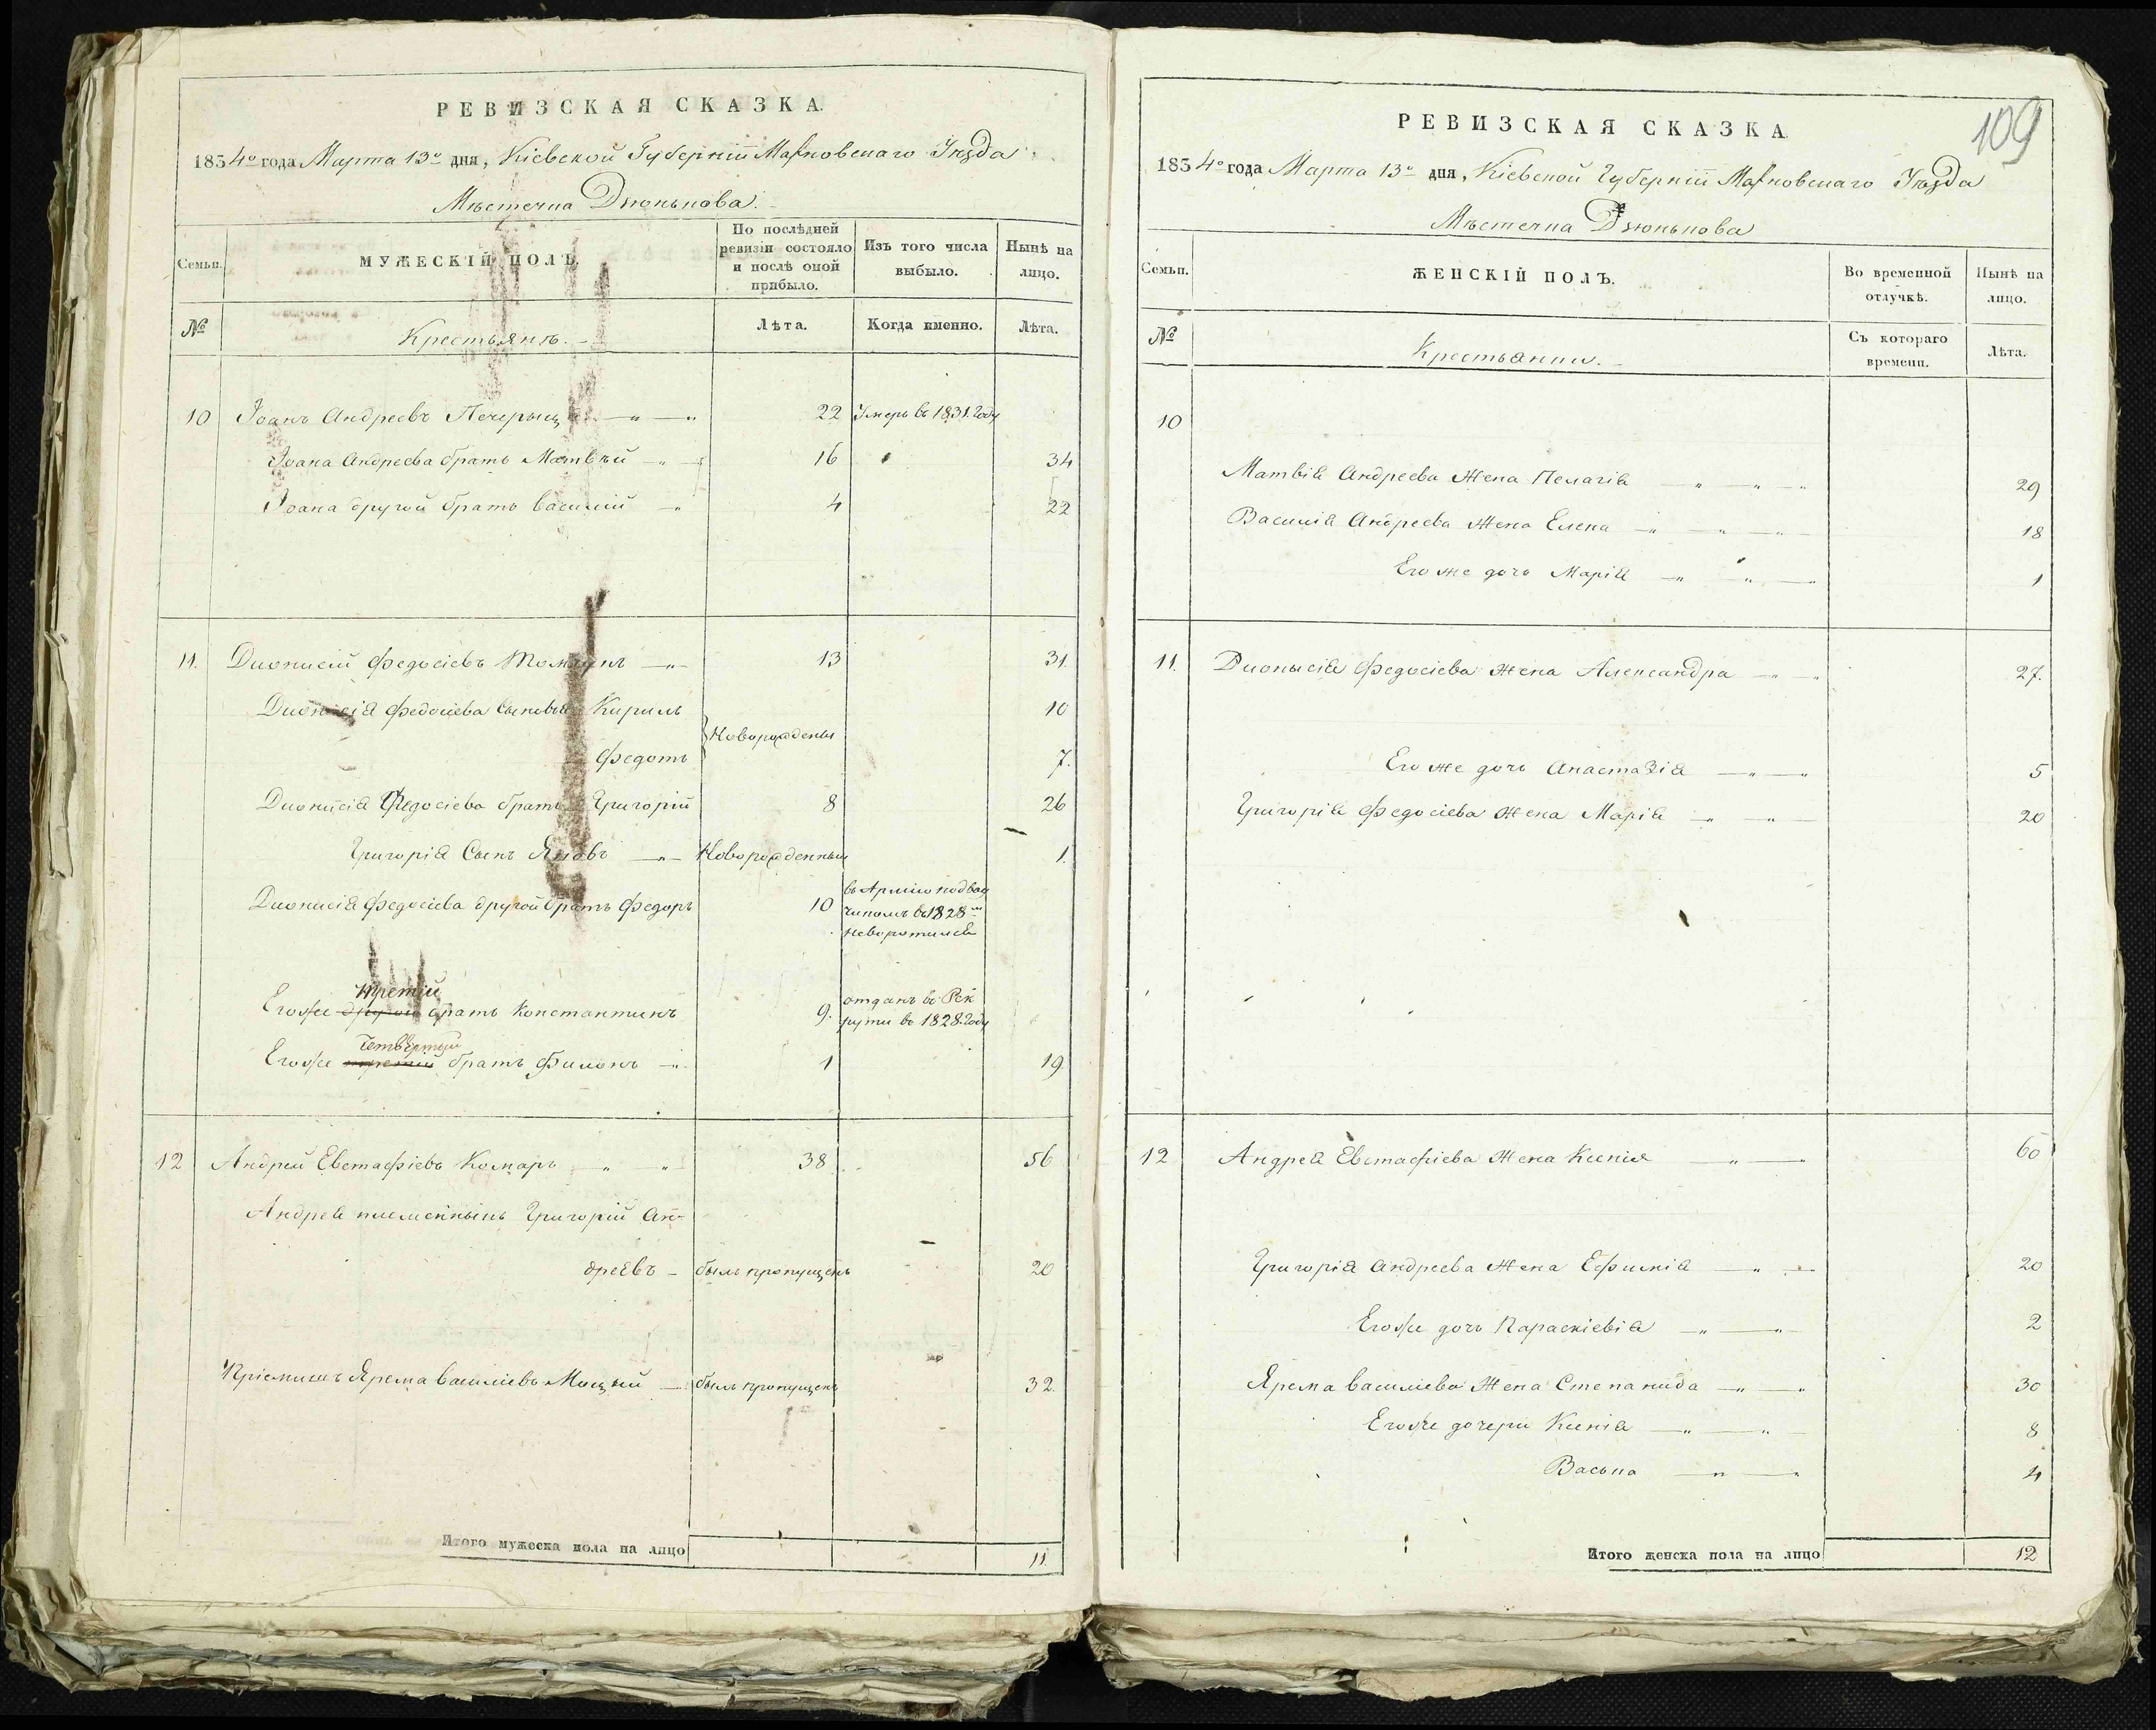 РЕВИЗСКАЯ СКАЗКА.
1834го года Марта 13го дня, Кіевской Губерніи Махновскаго Уѣзда
Мѣстечка Дзюнькова.
Семьи.
МУЖЕСКІЙ ПОЛЪ.
По послѣдней ревизіи состояло и послѣ оной прибыло.
Изъ того числа выбыло.
Нынѣ на лицо.
№
Крестьянъ.
Лѣта.
Когда именно.
Лѣта.
10 Іоанъ Андреевъ 22 Умеръ въ 1831. Году
Іоана Андреева братъ Матвѣй 16 34
Іоана другой братъ Василій 4 22
11. Дионисій Федосіевъ 13 31.
Дионисія Федосіева Сыновья Кирилъ 10
Новорождены
Федотъ 7.
Дионисія Федосіева братъ Григорій 8 26
Григорія Сынъ Яковъ Новорожденный 1.
Дионисія Федосіева другой братъ Федоръ 10 въ Армію
чикомъ въ 1828м
неворотился
третій
Егоже другой братъ Константинъ 9. отданъ въ Рек
руты въ 1828. Году
Четвертый
Егоже третій братъ Филонъ 1 19
12 Андрей Евстафіевъ Комаръ 38 56
Андрея племенникъ Григорій Ан-
дреевъ - былъ пропущенъ 20
Пріемышъ Ярема Василіевъ былъ пропущенъ 32.
Итого мужеска пола на лицо 11.
109
РЕВИЗСКАЯ СКАЗКА
1834го года Марта 13го дня, Кіевской Губерніи Махновскаго Уѣзда
Мѣстечка Дзюнькова
Семьи.
ЖЕНСКІЙ ПОЛЪ.
Во временной отлучкѣ.
Нынѣ на лицо.
№
Крестьянки.
Съ котораго времени.
Лѣта.
10
Матвія Андреева Жена Пелагія 29
Василія Андреева Жена Елена 18
Его же дочь Марія 1
11. Дионысія Федосіева Жена Александра 27.
Его же дочь Анастазія 5
Григорія Федосіева Жена Марія 20
12 Андрея Евстафіева Жена Ксенія 60
Григорія Андреева Жена Ефимія 20
Егоже дочь Параскіевія 2
Ярема Василіева Жена Степанида 30
Егоже дочери Ксенія 8
Васька 4
Итого женска пола на лицо 12